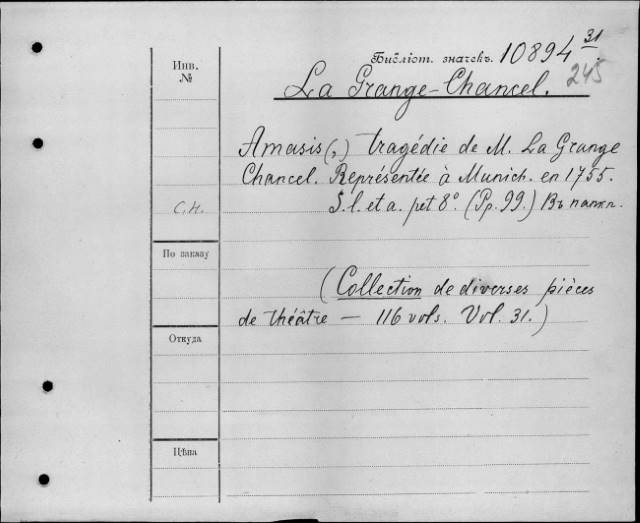 Библіот. значекъ. 10894 31
245
Инв.
№
La Grange-Chancel.
Amasis(,) tragédie de M. La Grange
Chancel. Représentée à Munich. en 1755.
С.Н.
S. l. et a. pet 8°. (Pp. 99.) Въ папк.
По заказу
(Collection de diverses pièces
de théâtre — 116 vols. Vol. 31.)
Откуда
Цѣна